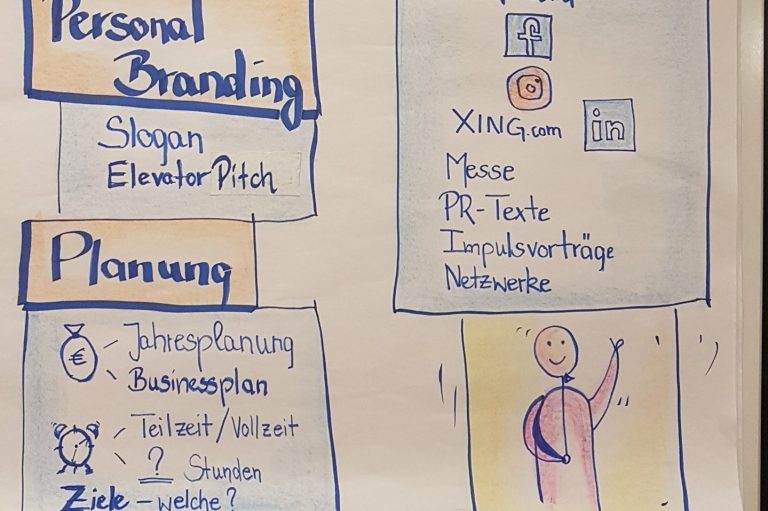 Personal
Branding
Slogan
Elevator Pitch
Planung
€
Jahresplanung
Businessplan
Teilzeit/Vollzeit
? Stunden
Ziele – welche?
f
XING.com
in
Messe
PR-Texte
Impulsvorträge
Netzwerke